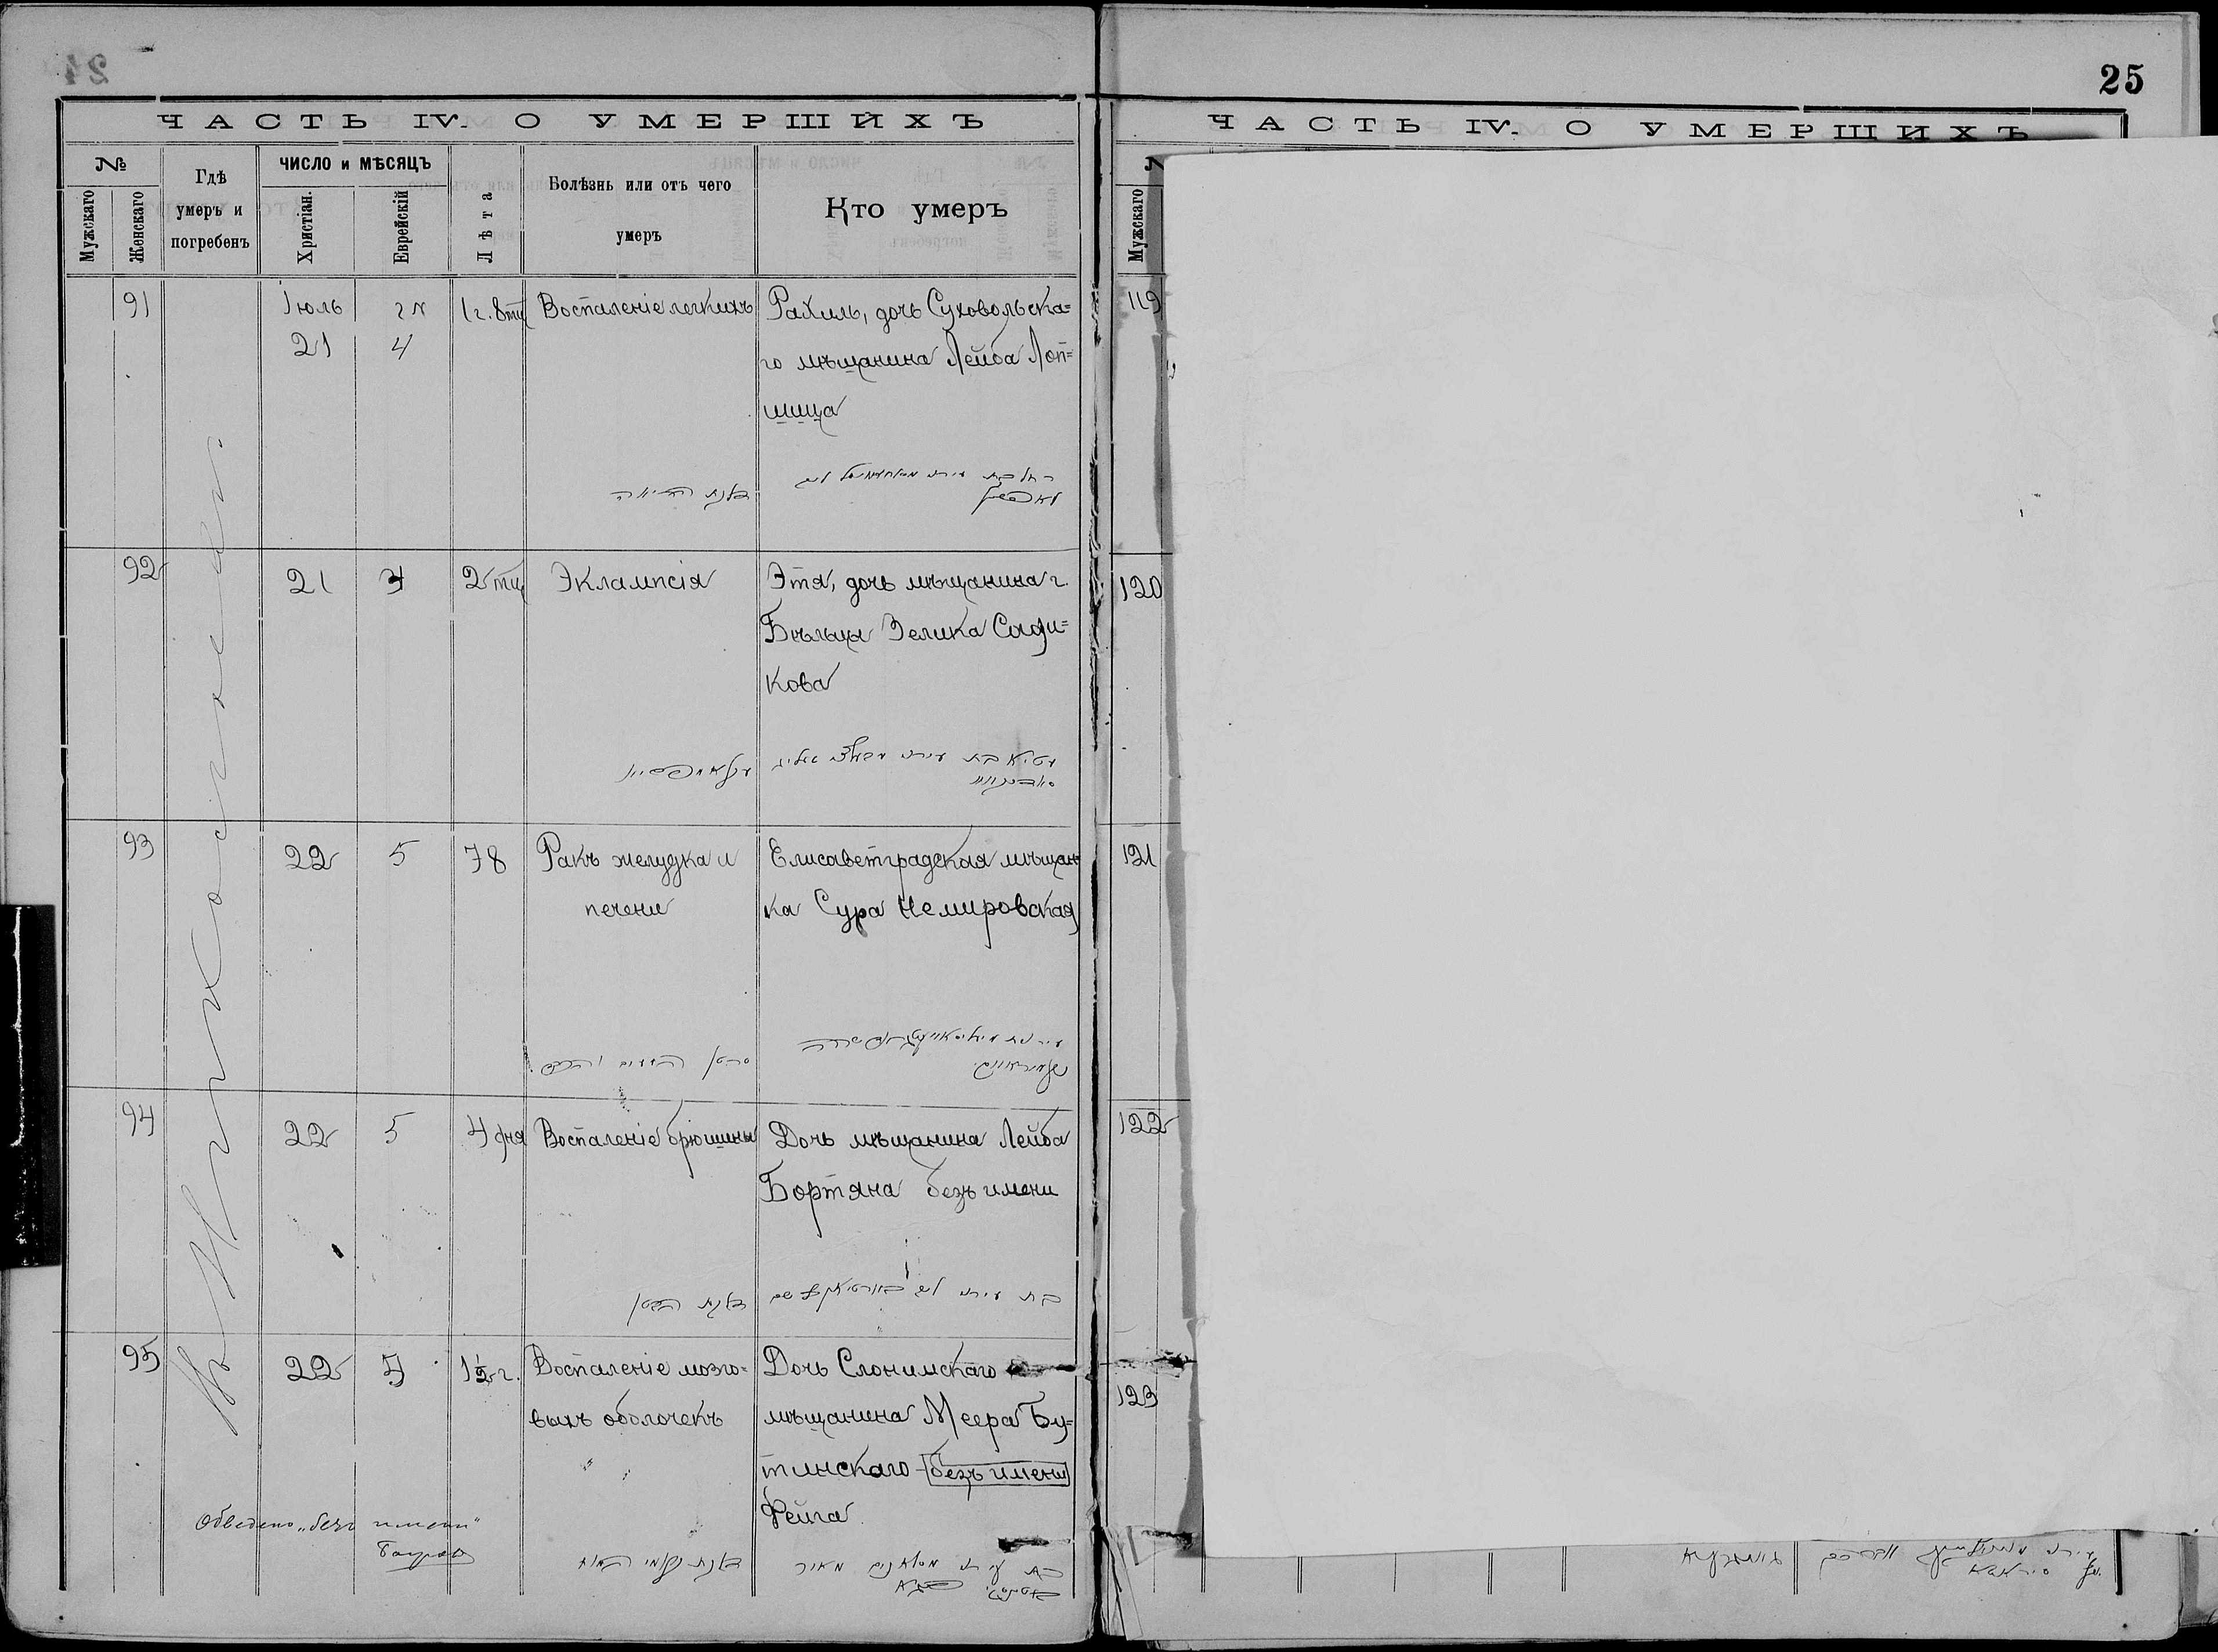 24
ЧАСТЬ IV. О УМЕРШИХЪ
№
Мужскаго
Женскаго
Гдѣ умеръ и погребенъ
ЧИСЛО и МѢСЯЦЪ
Христіан.
Еврейскій
Лѣта
Болѣзнь или отъ чего умеръ
Кто умеръ
91
Іюль
21
4
1 г. 8 мц
Воспаленіе легкихъ
Рахиль, дочь Суховольска=
го мѣщанина Лейба Лоп=
шица
דלקת הריאה
92
21
4
2 мц
Эклампсія
Этя, дочь мѣщанина г.
Бѣльцы Зелика Сади=
кова
93
22
5
78
Ракъ желудка и
печени
Елисаветградская мѣщан
ка Сура Немировская
94
22
5
4 дня
Воспаленіе брюшины
Дочь мѣщанина Лейба
Бортяна безъ имени
דלקת הבטן
95
22
5
1½ г.
Воспаленіе мозго=
выхъ оболочекъ
Дочь Слонимскаго
мѣщанина Меера Бу=
тинскаго безъ имени
Фейга
Обведено „безъ имени"
דלקת קרומי המוח
25
ЧАСТЬ IV. О УМЕРШИХЪ
Мужскаго
119
120
121
122
123